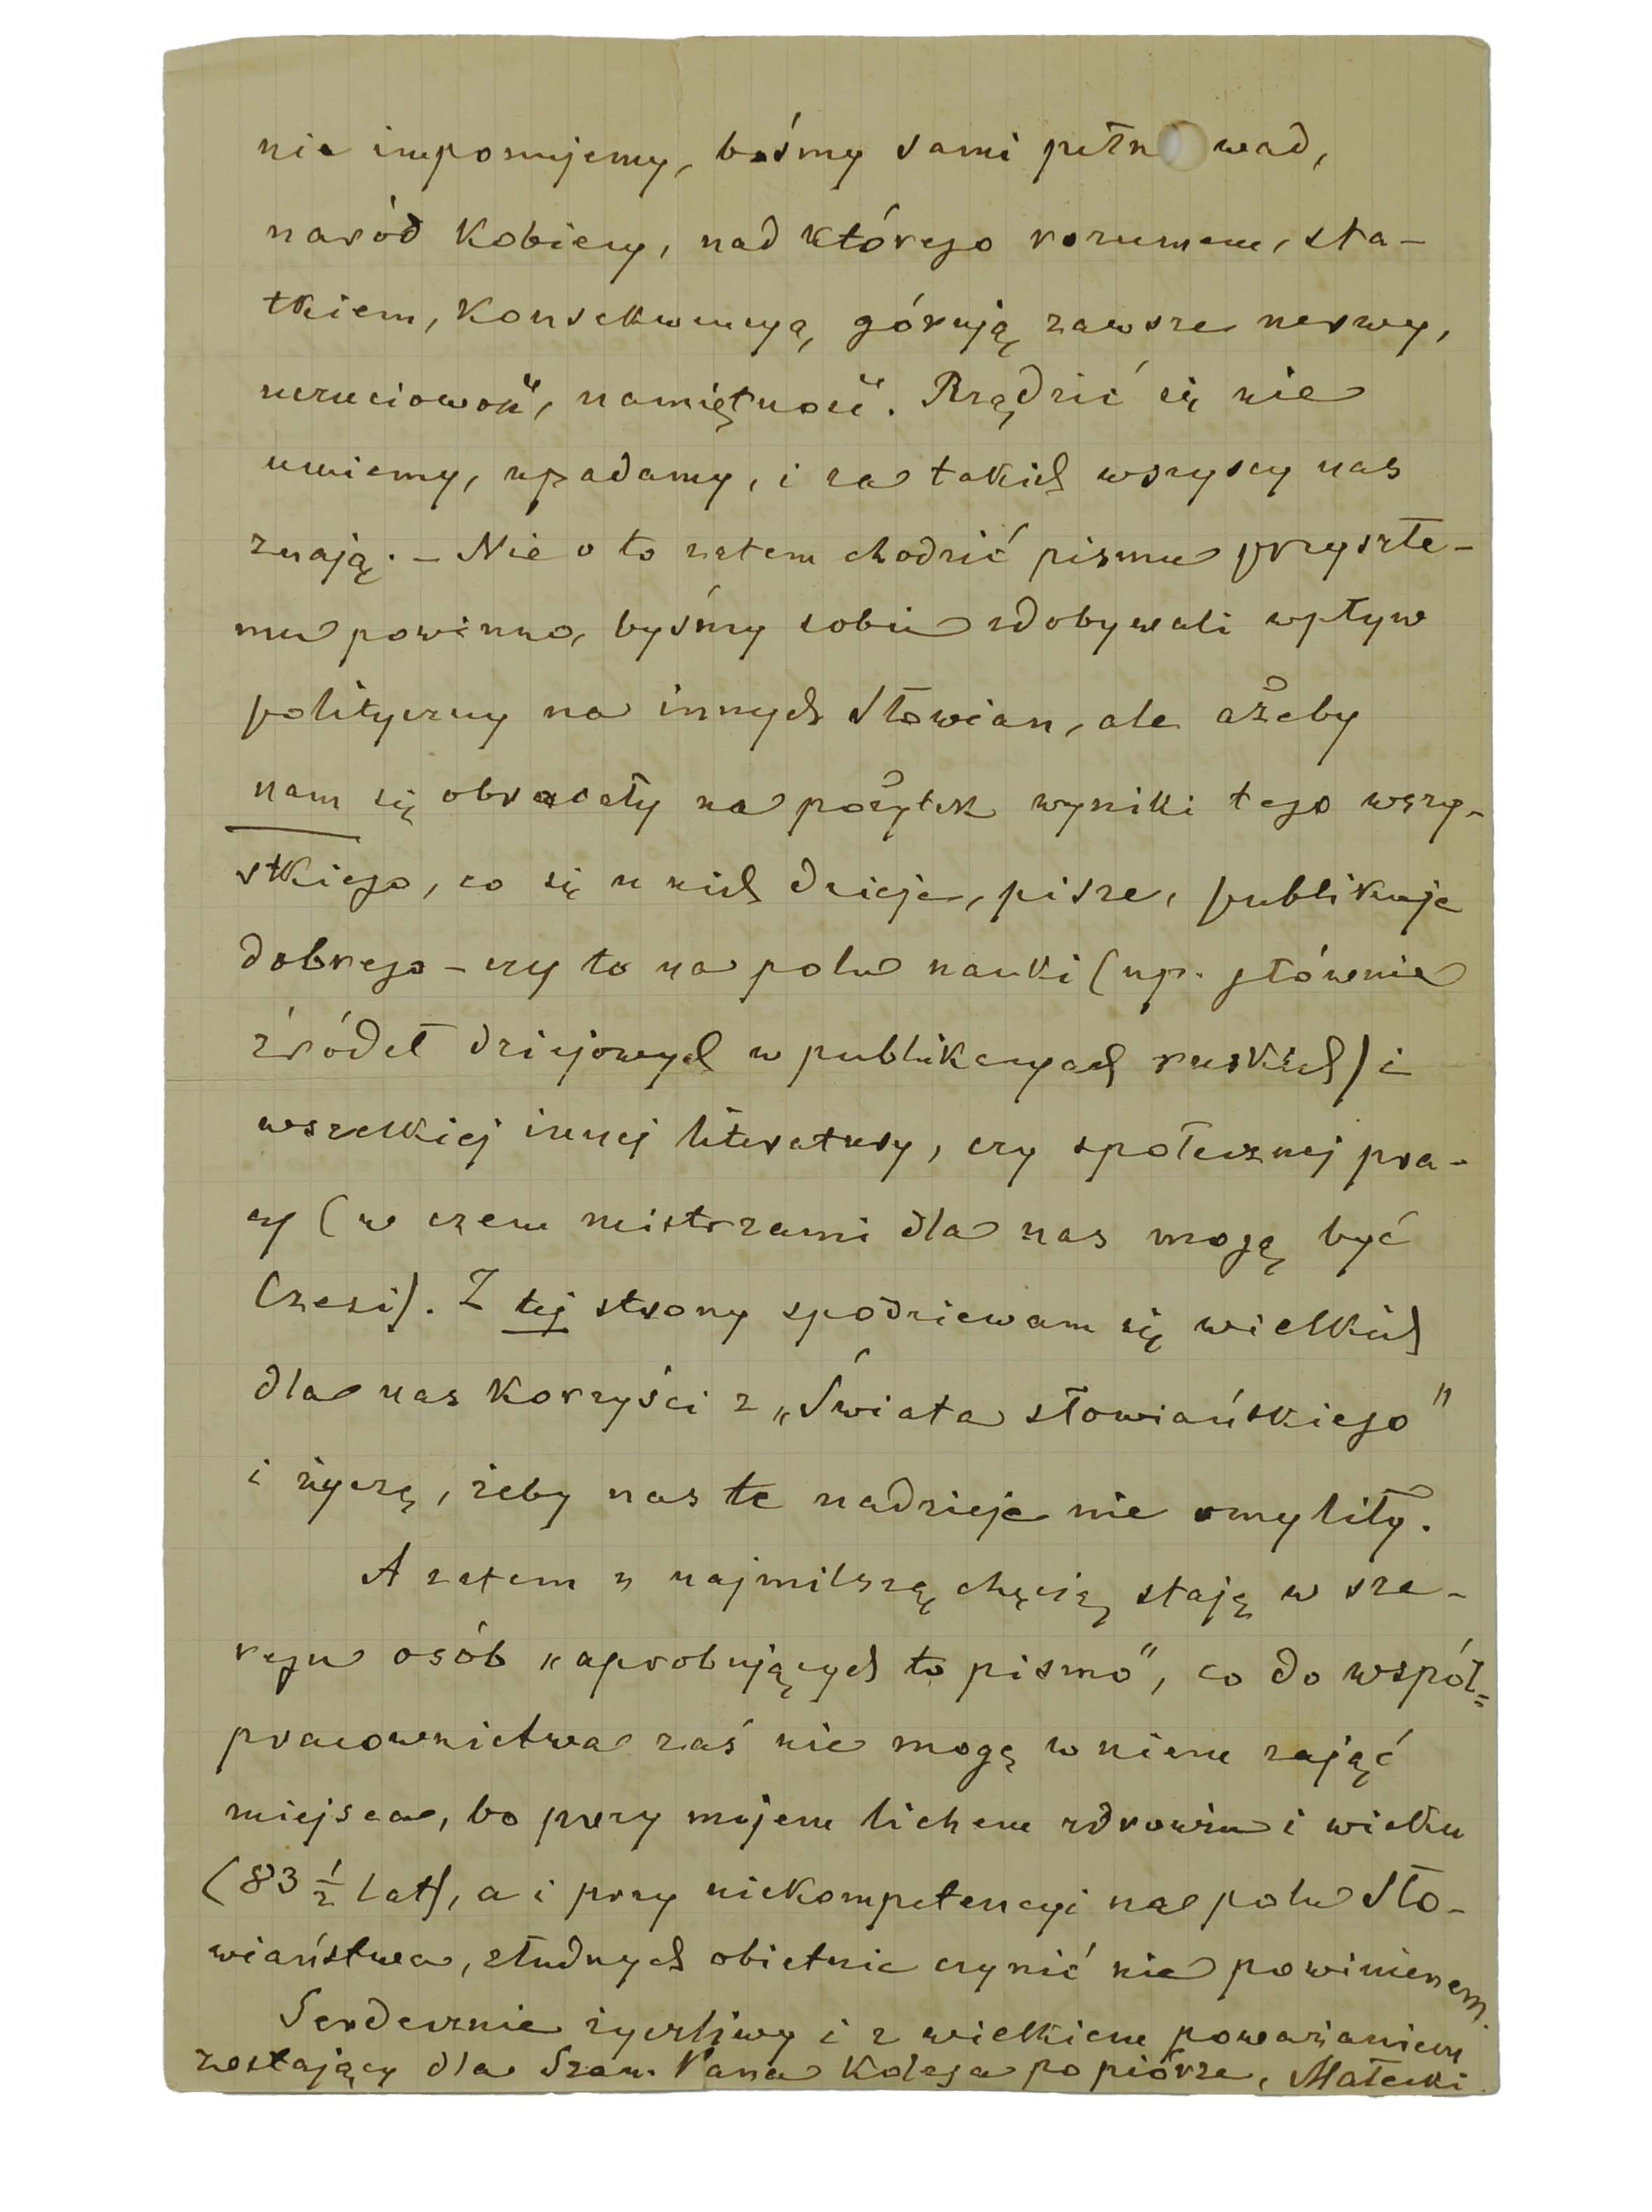 nie imponujemy, bośmy sami pełn wad,
naród kobiecy, nad którego rozumem, sta-
tkiem, konsekwencyą, górują zawsze nerwy,
uczuciowość, namiętność. Rządzić się nie
umiemy, upadamy, i za takich wszyscy nas
znają. – Nie o to zatem chodzić pismu przyszłe-
mu powinno, byśmy sobie zdobywali wpływ
polityczny na innych Słowian, ale ażeby
nam się obracały na pożytek wyniki tego wszy-
stkiego, co się u nich dzieje, pisze, publikuje
dobrego – czy to na polu nauki (np. głównie
źródeł dziejowych w publikacyach ruskich) i
wszelkiej innej literatury, czy społecznej pra-
cy (w czem mistrzami dla nas mogą być
Czesi). Z tej strony spodziewam się wielkich
dla nas korzyści z „Świata słowiańskiego"
i życzę, żeby nas te nadzieje nie omyliły.
A zatem z najmilszą chęcią staję w sze-
regu osób „aprobujących to pismo", co do współ=
pracownictwa zaś nie mogę w niem zająć
miejsca, bo przy mojem lichem zdrowiu i wieku
(83 ½ lat), a i przy niekompetencyi na polu Sło-
wiaństwa, złudnych obietnic czynić nie powinienem.
Serdecznie życzliwy i z wielkiem poważaniem
zostający dla Szan. Pana kolega po piórze, Małecki